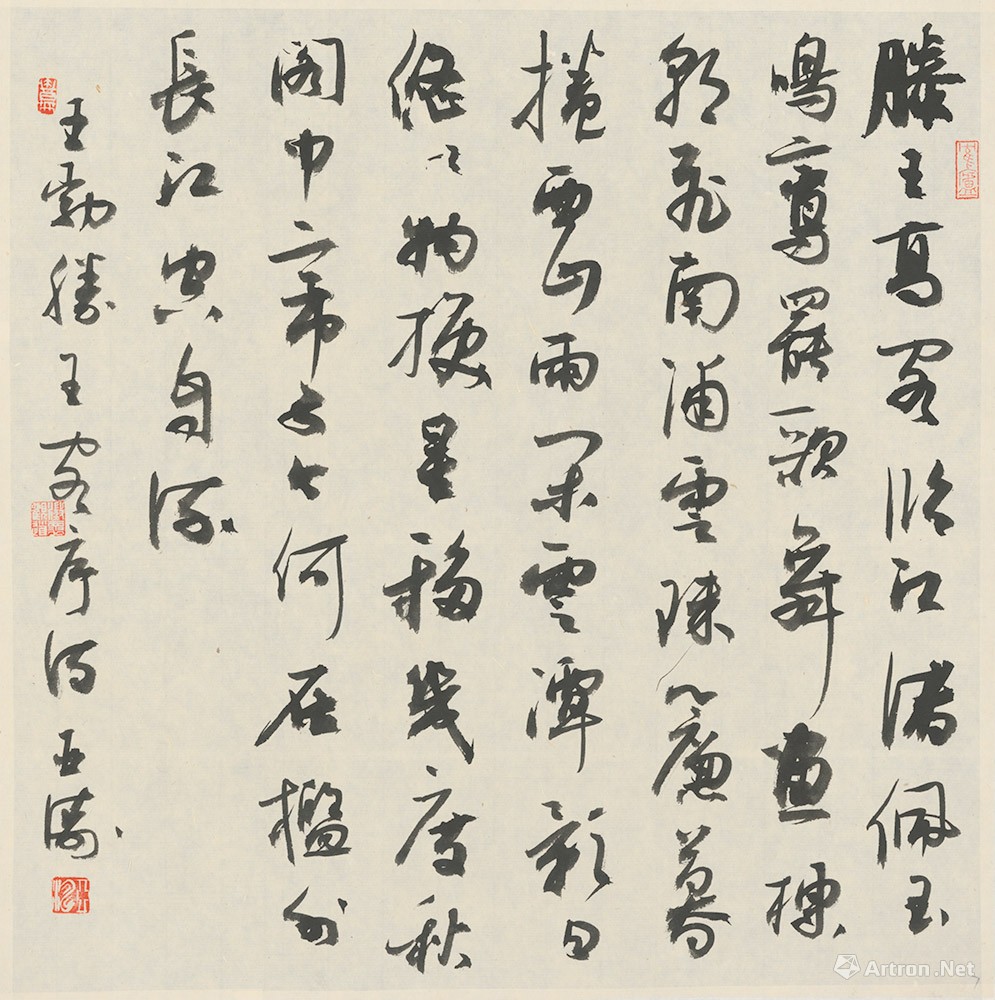 滕王高閣臨江渚佩玉
鳴鸞罷歌舞畫棟
朝飛南浦雲珠簾暮
捲西山雨閑雲潭影日
悠々物換星移幾度秋
閣中帝子今何在檻外
長江空自流
王勃滕王閣序詩
Artron.Net